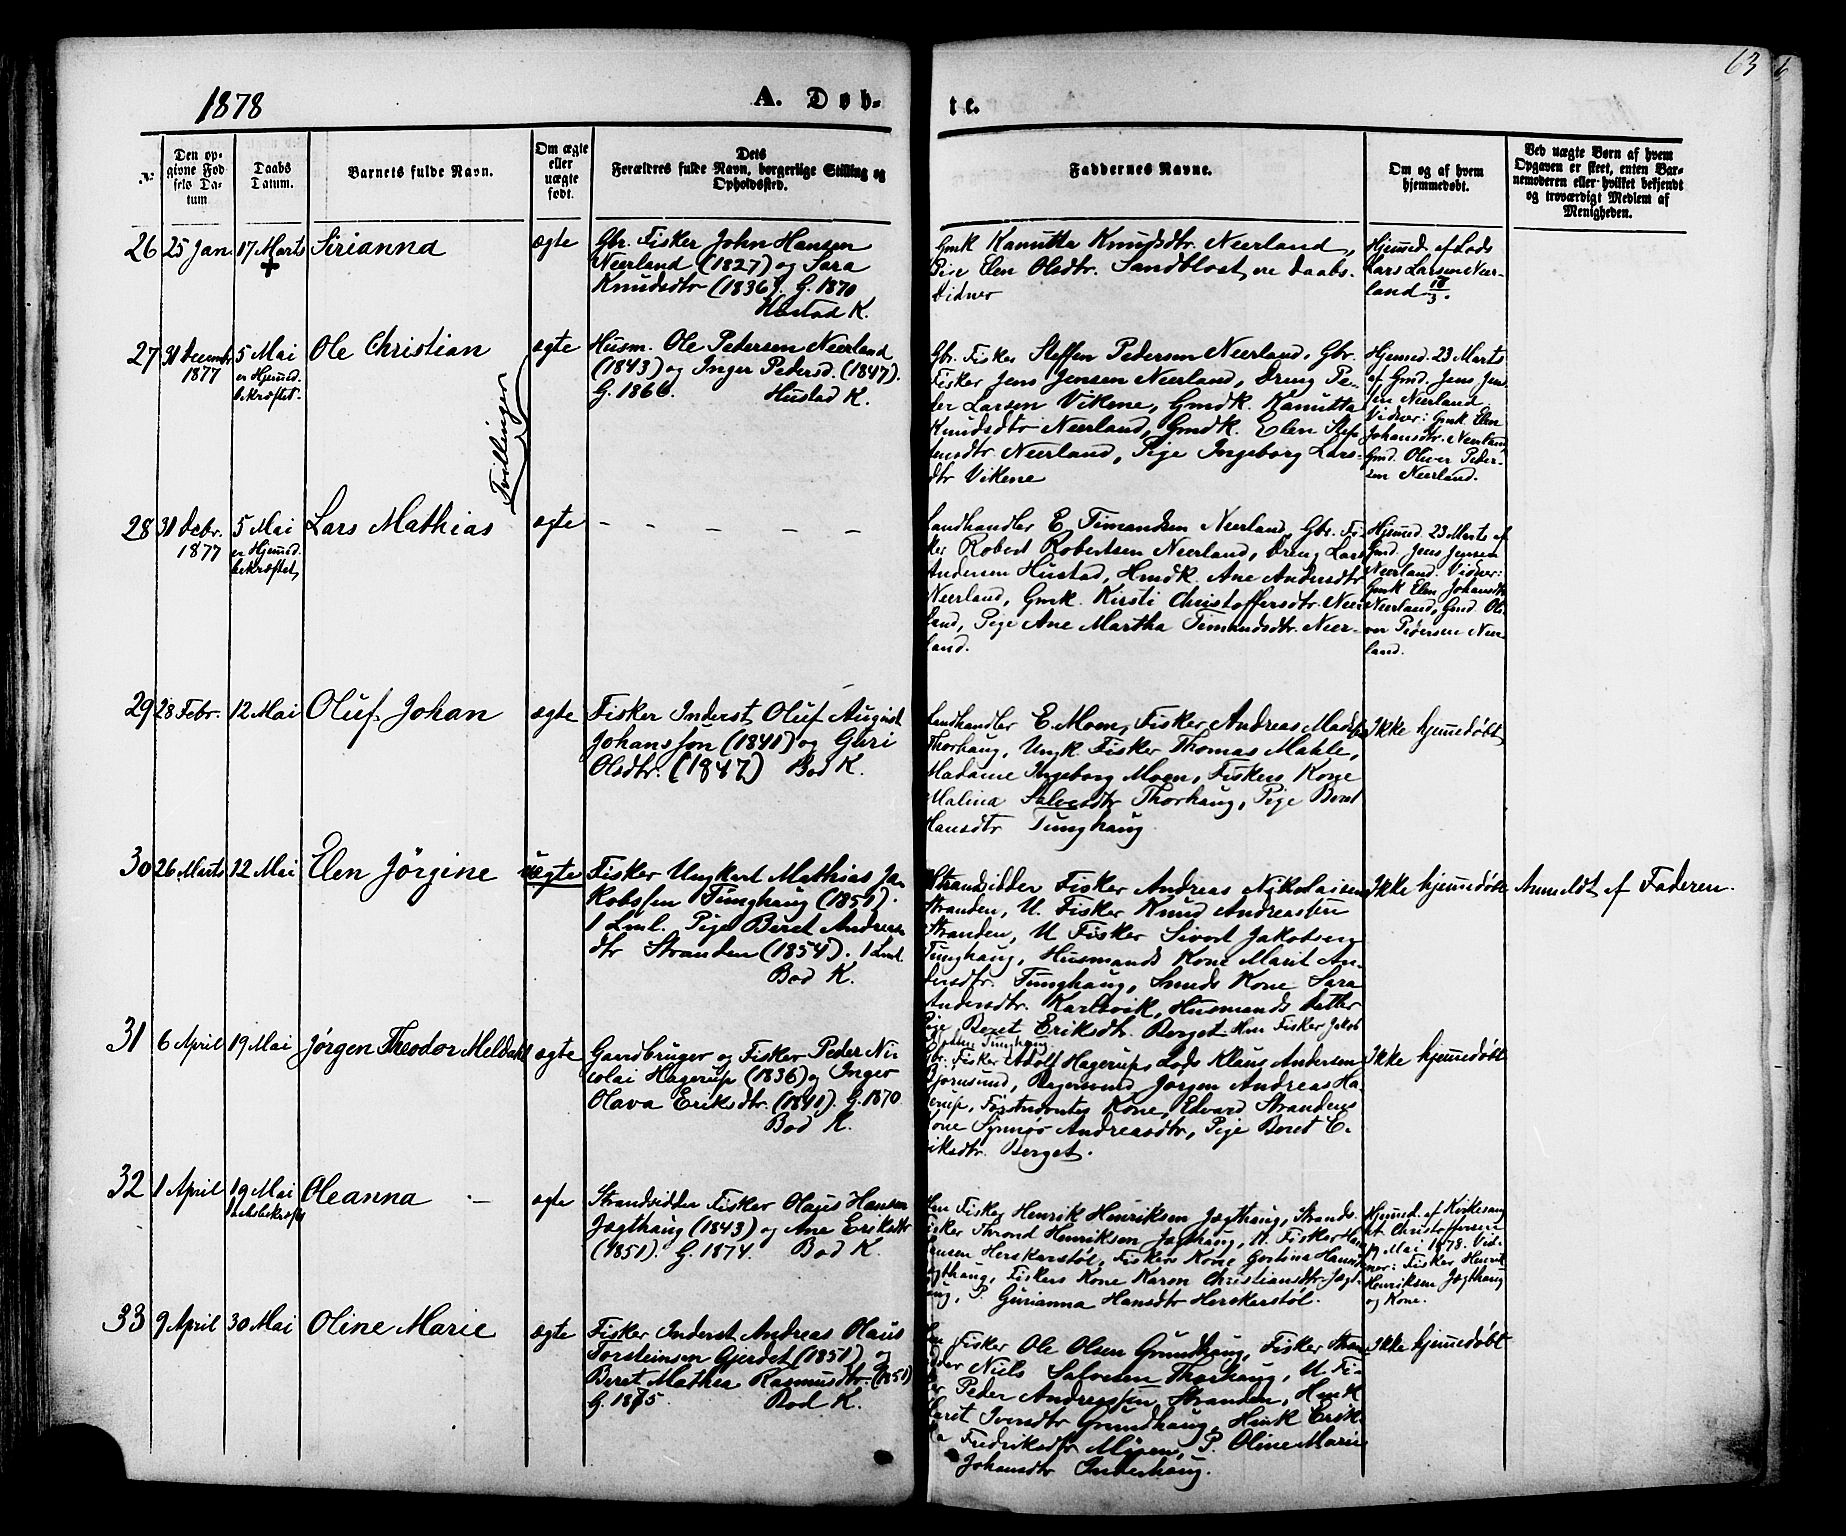 63
1878
A. Døb-
te.
No.
Den op-
givne Fød
sels Da-
tum
Daabs
Datum.
Barnets fulde Navn.
Om ægte
eller
uægte
født.
Dets
Forældres fulde Navn, borgerlige Stilling og
Opholdssted.
Faddernes Navne.
Om og af hvem
hjemmedøbt.
Ved uægte Børn af hvem
Opgaven er skeet, enten Bar-
nemoderen eller hvilket bekjendt
og troværdigt Medlem af
Menigheden.
26
25 Jan.
17 Marts
+
Sirianna
ægte
Gbr. Fisker John Hansen
Neerland (1827) og Sara
Knudsdtr (1836). G. 1870
Hustad K.
Gmk Kanutta Knudsdtr. Neerland,
Pige Elen Olsdtr. Sandblost, ere Daabs-
Vidner
Hjemmed. af Lods
Lars Larsen Neer-
land 18/3.
27
31 Decembr
1877
5 Mai
er Hjemmed.
bekræftet.
Ole Christian
Tvillinger
ægte
Husm. Ole Pedersen Neerland
(1843) og Inger Pedersd. (1847).
G. 1866. Hustad K.
Gbr. Fisker Steffen Pedersen Neerland, Gbr.
Fisker Jens Jensen Neerland, Dreng Pe-
der Larsen Vikene, Gmdk. Kanutta
Knudsdtr Neerland, Gmdk. Elen Stef-
ensdtr. Neerland, Pige Ingeborg Lars-
dtr Vikene
Hjemmed. 23 Marts
af Gmd. Jens Jen-
sen Neerland.
Vidner: Gmk Elen
Johansdtr. Neerland,
Gmd. Oliver Peder-
sen Neerland.
28
31 Decbr.
1877
5 Mai
er Hjemmed.
bekræftet,
Lars Mathias
ægte
- - - - -
Landhandler E. Timandsen Neerland, Gbr. Fi-
ker Robert Robertsen Neerland, Dreng Lars
Andersen Hustad, Hmdk. Ane Andersdtr
Neerland, Gmk. Kirsti Christoffersdtr. Neer-
land, Pige Ane Martha Timandsdtr. Neer-
land.
Hjemmed. 23 Marts af
Gmd. Jens Jensen
Neerland. Vidner:
Gmk Elen Johansdtr
Neerland, Gmd. Oli-
ver Pedersen Neer-
land.
29
28 Febr.
12 Mai
Oluf Johan
ægte
Fisker Inderst Oluf August
Johansson (1841) og Guri
Olsdtr. (1847) Bod K.
Landhandler E. Moen, Fisker Andreas Madsen
Thorhaug, Ungk Fisker Thomas Male,
Madame Ingeborg Moen, Fiskers Kone
Malina Salvesdtr Thorhaug, Pige Beret
Hansdtr Tunghaug
Ikke hjemmedøbt
30
26 Marts
12 Mai
Elen Jørgine
uægte
Fisker Ungkarl Mathias Ja-
kobssen Tunghaug (1851).
1 Lml. Pige Beret Andreas
dtr Stranden (1854). 1 Lml
Bod K.
Strandsidder Fisker Andreas Nikolaisen
Stranden, U. Fisker Knud Andreassen
Stranden, U Fisker Sivert Jakobsen
Tunghaug, Husmands Kone Marit An-
dersdtr. Tunghaug, Smeds Kone Sara
Andersdtr. Karlsvik, Husmands datter
Pige Beret Eriksdtr. Berget. Hm Fisker Jakob
Tunghaug
Ikke hjemmedøbt
Anmeldt af Faderen.
31
6 April
19 Mai
Jørgen Theodor Meldahl
ægte
Gaardbruger og Fisker Peder Ni-
colai Hagerup (1836) og Inger
Olava Eriksdtr. (1841). G. 1870
Bod K.
Gbr. Fisker Adolf Hagerup, Lods Klaus Andersen
Bjørnsund, Jørgen Andreas Ha-
gerup, Kone, Edvard Strandens
Kone Synnør Andreasdtr, Pige Beret E-
riksdtr. Berget.
Ikke hjemmedøbt
32
1 April
19 Mai
Oleanna -
ægte
Strandsidder Fisker Olaus Hansen
Jægthaug (1843) og Ane Eriksdtr
(1851). G. 1874. Bod K.
Hm Fisker Henrik Henriksen Jægthaug, Strands.
Fisker Thrond Henriksen Jægthaug, U. Fisker Hans
Hansen Herskerstøl, Fiskers Kone Gurtina Hansdtr
Jægthaug, Fiskers Kone Karen Christiansdtr Jægt-
haug, P. Gurianna Hansdtr Herskerstøl.
Hjemmed. af Kirkesang
Christoffersen
Mai 1878. Vid-
ner: Fisker Henrik
Henriksen Jægthaug
og Kone.
33
9 April
30 Mai
Oline Marie
ægte
Fisker Inderst Andreas Olaus
Torsteinsen Gjerdet (1851) og
Beret Mathea Rasmusdtr. (1851)
G. 1875. Bod K.
Hm Fisker Ole Olsen Grundhaug, Fisker Stran-
sidder Niels Salvesen Thorhaug, U. Fi-
sker Peder Andreassen Stranden, Hmk
Beret Iversdtr Grundhaug, Hmk Erik-
a Fredriksdtr Myren, P. Oline Marie
Johansdtr Inderhaug.
Ikke hjemmedøbt